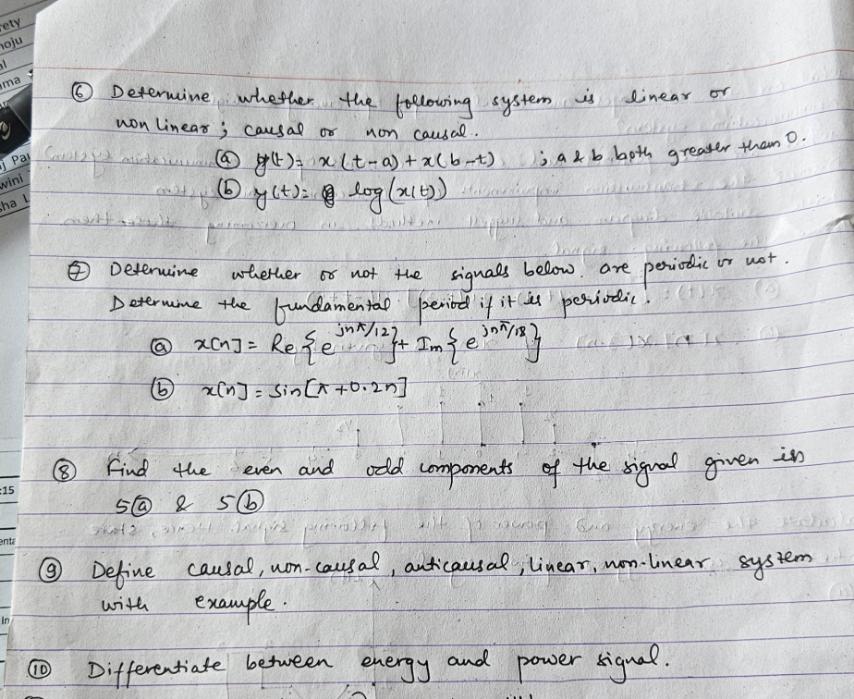 ety
noju
al
ma
j Pa
wini
sha L
:15
enta
In
⑥ Determine whether the following system is linear or
non linear ; causal or non causal.
ⓐ y(t) = x(t-a) + x(b-t) ; a & b both greater than 0.
ⓑ y(t) = log(x(t))
⑦ Determine whether or not the signals below are periodic or not.
Determine the fundamental period if it is periodic.
ⓐ x[n] = Re{e^{jnπ/12}} + Im{e^{jnπ/18}}
ⓑ x[n] = sin[π+0.2n]
⑧ Find the even and odd components of the signal given in
5ⓐ & 5ⓑ
⑨ Define causal, non-causal, anticausal, linear, non-linear system
with example.
⑩ Differentiate between energy and power signal.